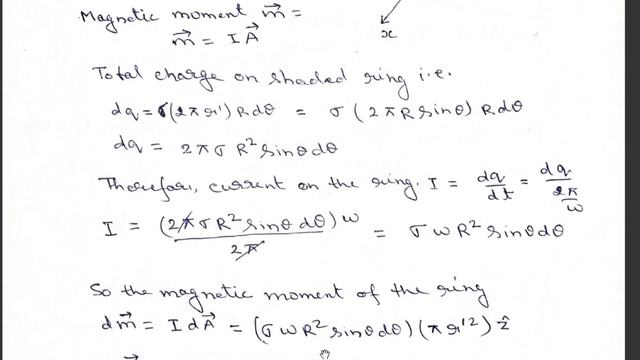 Magnetic moment m⃗ =
m⃗ = I A⃗
x
Total charge on shaded ring i.e.
dq = σ(2πr')Rdθ = σ(2πR sinθ) R dθ
dq = 2πσ R² sinθdθ
Therefor, current on the ring. I = dq/dt = dq/(2π/ω)
I = (2πσR² sinθdθ)ω/2π = σωR² sinθdθ
So the magnetic moment of the ring
dm⃗ = I dA⃗ = (σωR² sinθdθ)(πr'²) ẑ